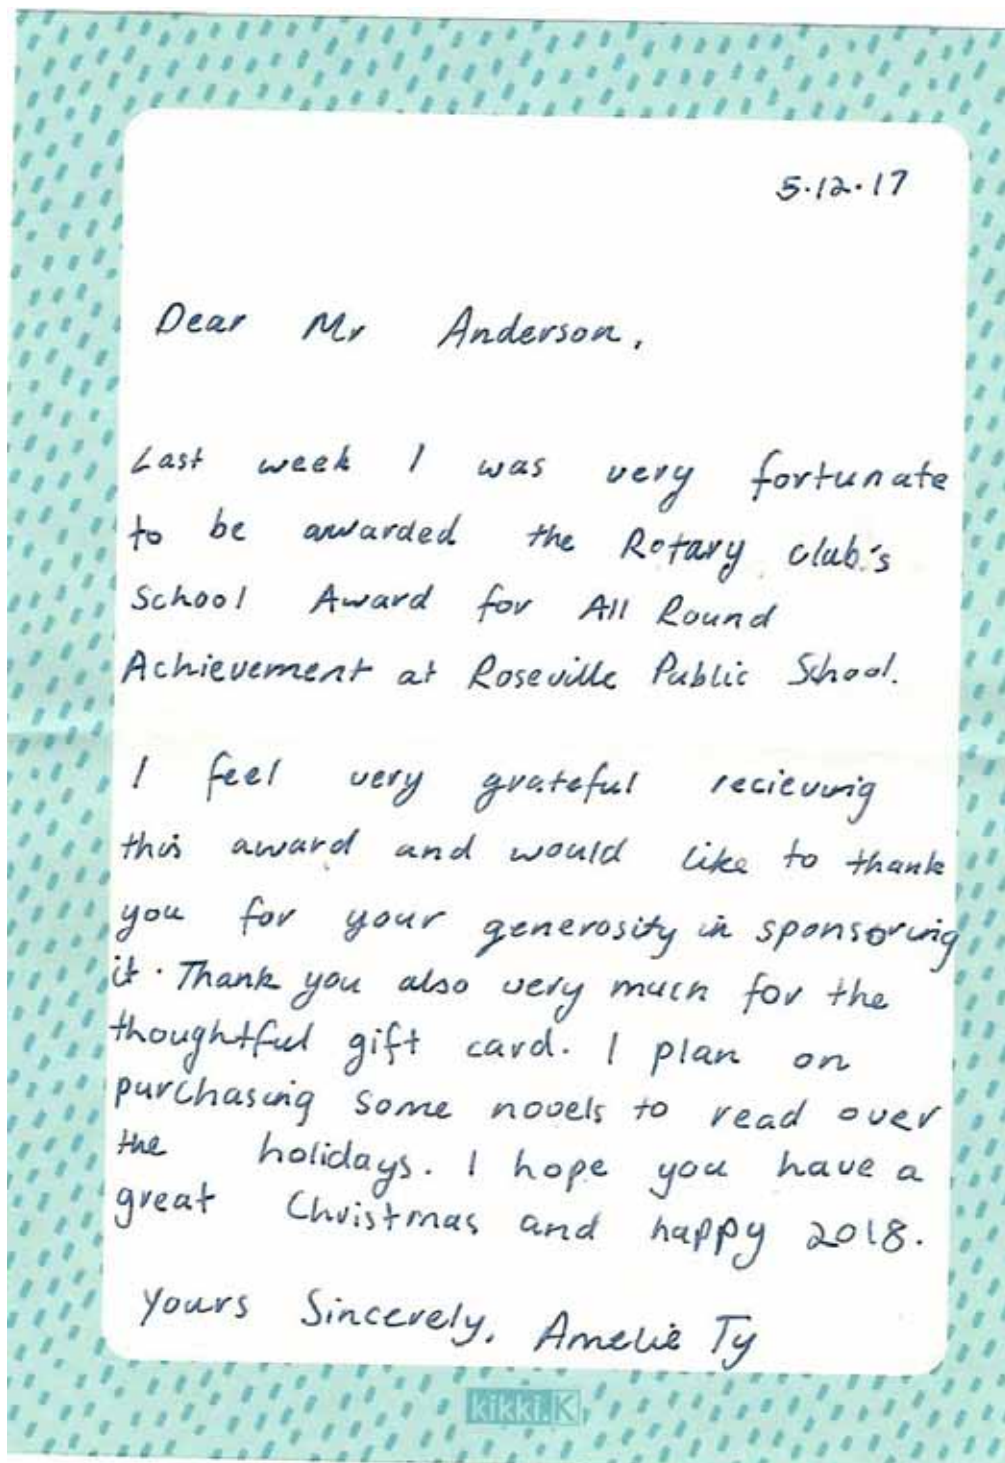 5.12.17
Dear Mr Anderson,
Last week I was very fortunate
to be awarded the Rotary club's
School Award for All Round
Achievement at Roseville Public School.
I feel very grateful recieving
this award and would like to thank
you for your generosity in sponsoring
it. Thank you also very much for the
thoughtful gift card. I plan on
purchasing some novels to read over
the holidays. I hope you have a
great Christmas and happy 2018.
Yours Sincerely, Amelie Ty
kikki.K